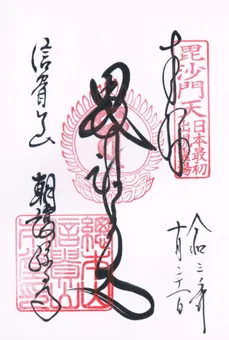 奉拝
毘沙門天
日本最初
出現霊場
毘沙門天
信貴山
朝護孫子寺
総本山
信貴山
令和三年
十月二十一日